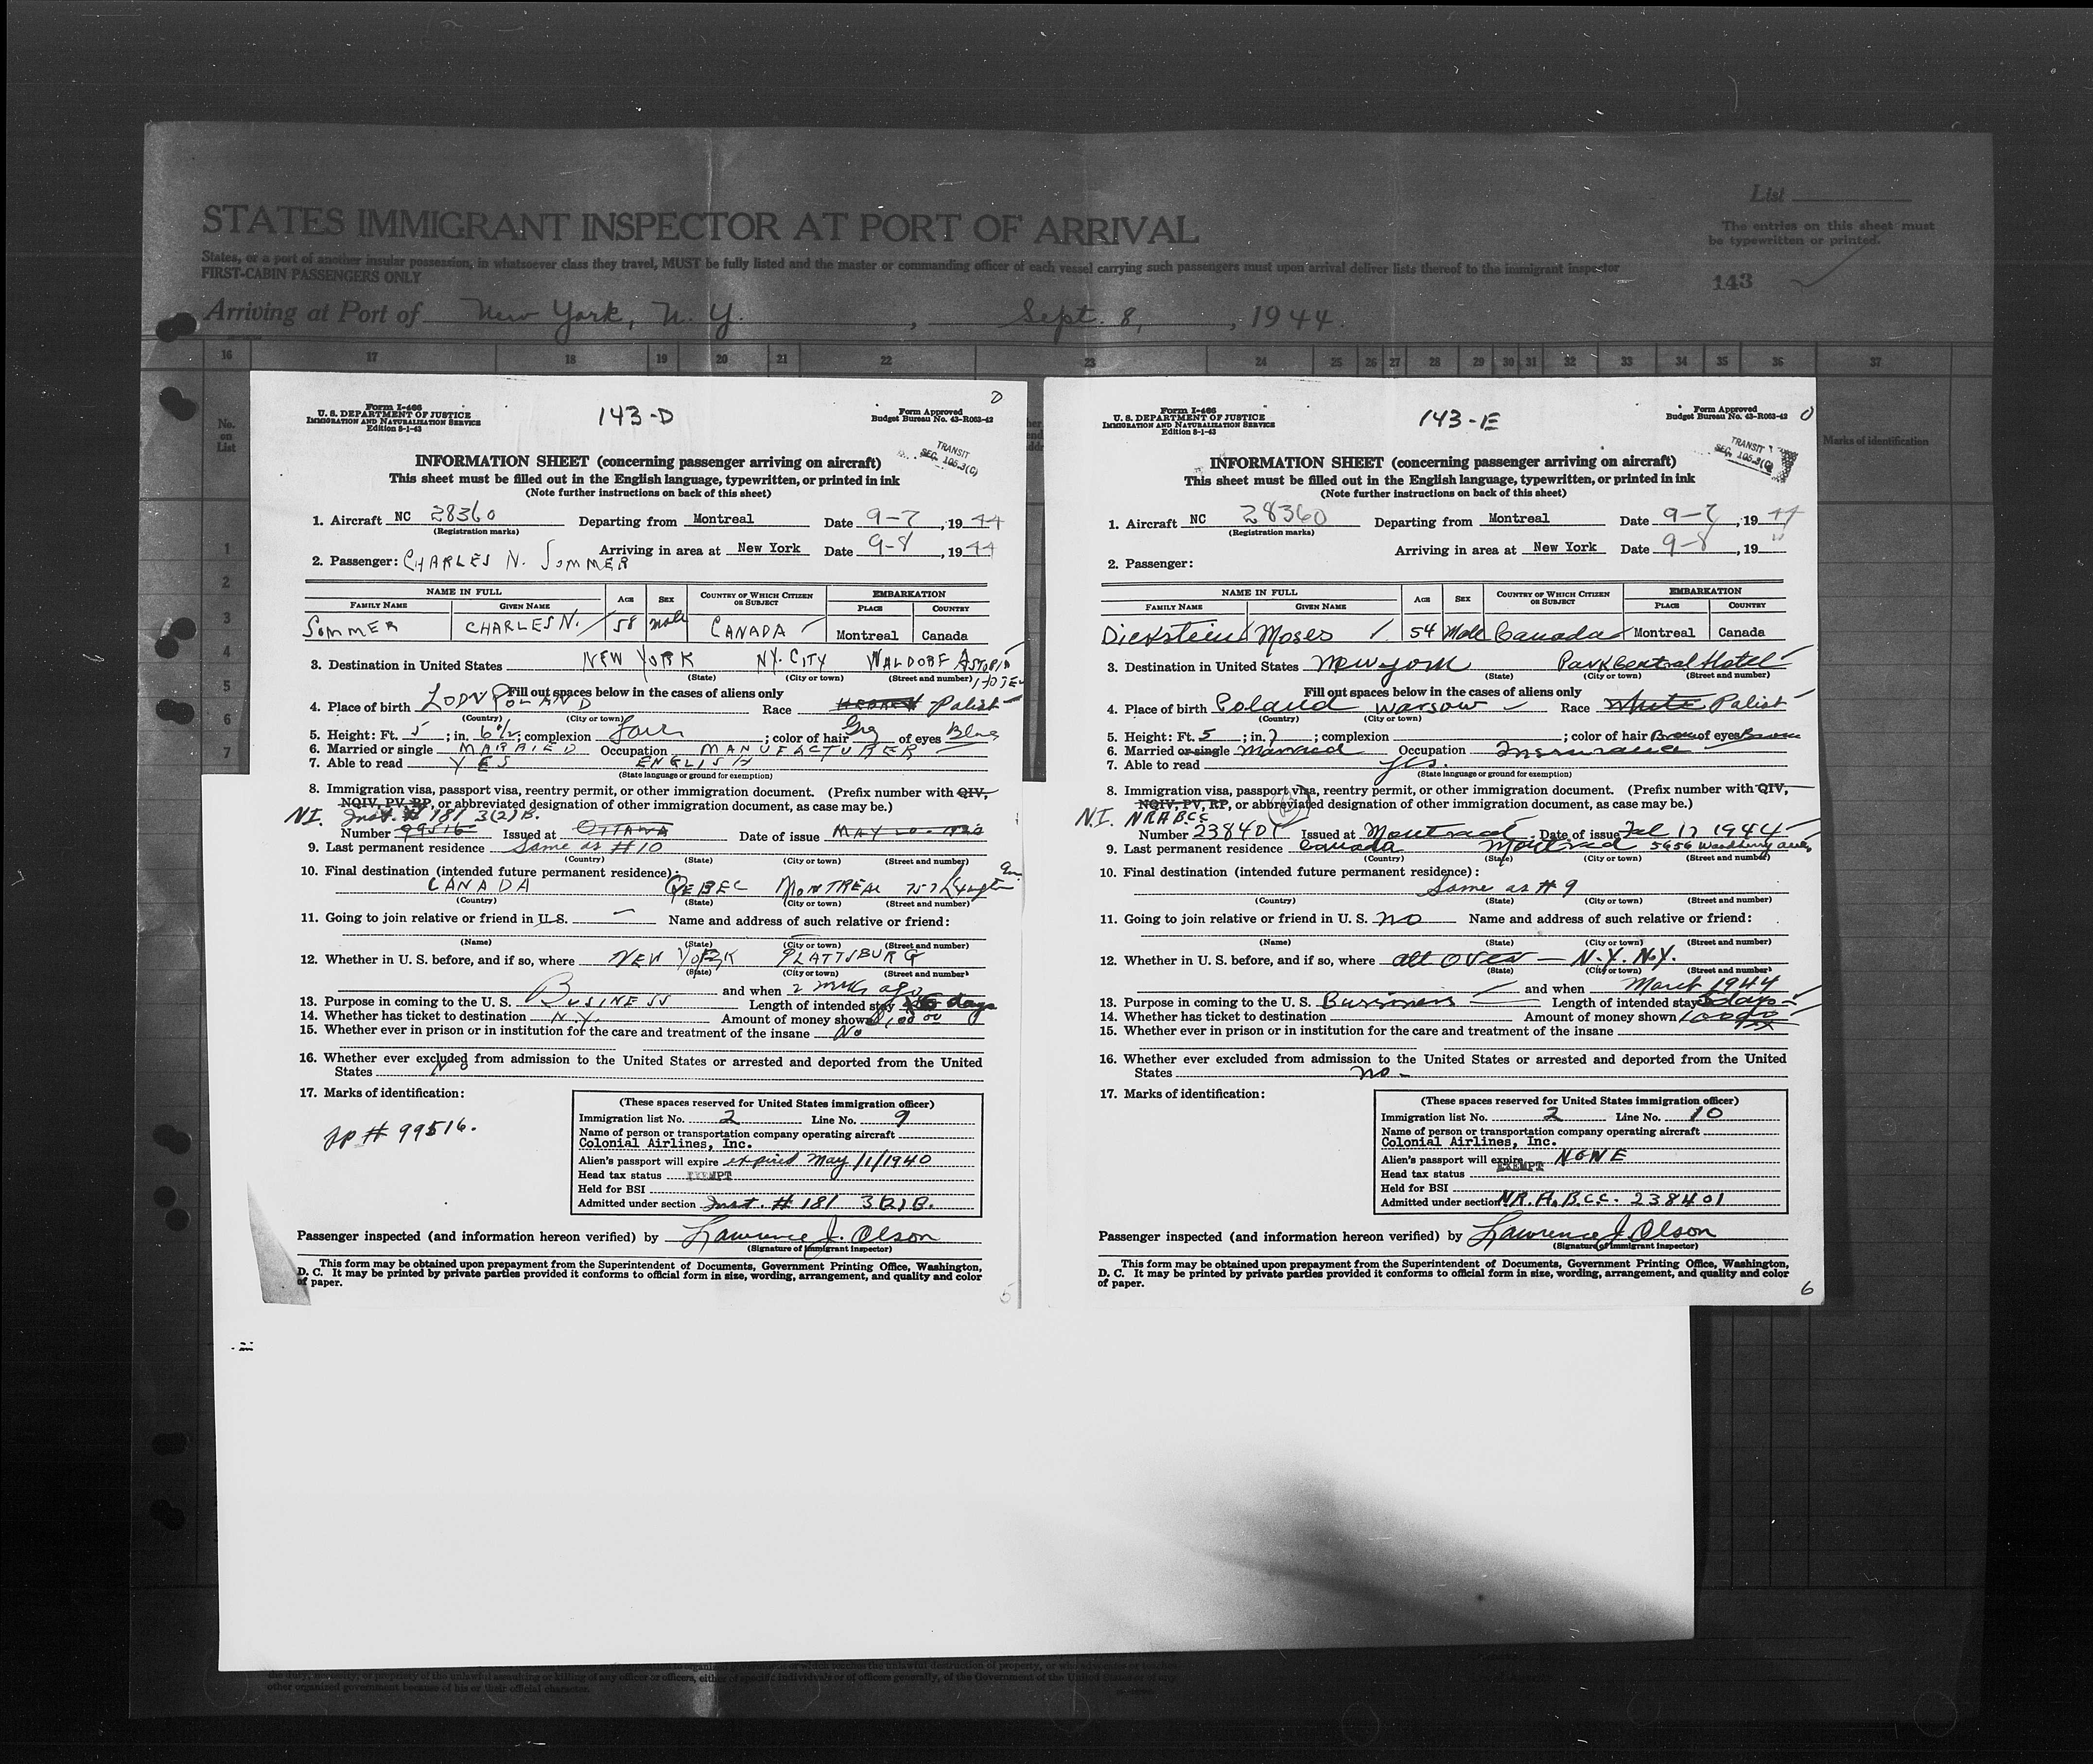 List
STATES IMMIGRANT INSPECTOR AT PORT OF ARRIVAL
The entries on this sheet must
be typewritten or printed.
States, or a port of another insular possession, in whatsoever class they travel, MUST be fully listed and the master or commanding officer of each vessel carrying such passengers must upon arrival deliver lists thereof to the immigrant inspector
FIRST-CABIN PASSENGERS ONLY
143
Arriving at Port of New York, N. Y. , Sept. 8, , 1944.
16 17 18 19 20 21 22 23 24 25 26 27 28 29 30 31 32 33 34 35 36 37
No.
on
List
Marks of identification
1
2
3
4
5
6
7
Form I-466
U. S. DEPARTMENT OF JUSTICE
IMMIGRATION AND NATURALIZATION SERVICE
Edition 8-1-43
143-D
Form Approved
Budget Bureau No. 43-R063-42
TRANSIT
SEC. 105.3(C)
INFORMATION SHEET (concerning passenger arriving on aircraft)
This sheet must be filled out in the English language, typewritten, or printed in ink
(Note further instructions on back of this sheet)
1. Aircraft NC 28360 Departing from Montreal Date 9-7, 1944
(Registration marks)
Arriving in area at New York Date 9-8, 1944
2. Passenger: CHARLES N. SOMMER
NAME IN FULL AGE SEX COUNTRY OF WHICH CITIZEN OR SUBJECT EMBARKATION
FAMILY NAME GIVEN NAME PLACE COUNTRY
SOMMER CHARLES N. 58 male CANADA Montreal Canada
3. Destination in United States NEW YORK NY. CITY WALDORF ASTORIA HOTEL
(State) (City or town) (Street and number)
Fill out spaces below in the cases of aliens only
4. Place of birth LODN POLAND Race HEBREW Polish
(Country) (City or town)
5. Height: Ft. 5; in. 6½; complexion Fair; color of hair Gry of eyes Blue
6. Married or single MARRIED Occupation MANUFACTURER
7. Able to read YES ENGLISH
(State language or ground for exemption)
8. Immigration visa, passport visa, reentry permit, or other immigration document. (Prefix number with QIV,
NQIV, PV, RP, or abbreviated designation of other immigration document, as case may be.)
NI. Inst. # 181 3(2)B.
Number 99516 Issued at OTTAWA Date of issue MAY
9. Last permanent residence Same as #10
(Country) (State) (City or town) (Street and number)
10. Final destination (intended future permanent residence):
CANADA QEBEC MONTREAL 757
(Country) (State) (City or town) (Street and number)
11. Going to join relative or friend in U.S. — Name and address of such relative or friend:
(Name) (State) (City or town) (Street and number)
12. Whether in U. S. before, and if so, where NEW YORK PLATTSBURG
(State) (City or town) (Street and number)
and when 2 wks ago
13. Purpose in coming to the U. S. BUSINESS Length of intended stay days
14. Whether has ticket to destination N.Y. Amount of money shown
15. Whether ever in prison or in institution for the care and treatment of the insane No
16. Whether ever excluded from admission to the United States or arrested and deported from the United
States No
17. Marks of identification:
PP # 99516.
(These spaces reserved for United States immigration officer)
Immigration list No. 2 Line No. 9
Name of person or transportation company operating aircraft
Colonial Airlines, Inc.
Alien's passport will expire expired May /1/1940
Head tax status EXEMPT
Held for BSI
Admitted under section Inst. # 181 3(2)B.
Passenger inspected (and information hereon verified) by Lawrence J. Olson
(Signature of immigrant inspector)
This form may be obtained upon prepayment from the Superintendent of Documents, Government Printing Office, Washington,
D. C. It may be printed by private parties provided it conforms to official form in size, wording, arrangement, and quality and color
of paper.
Form I-466
U. S. DEPARTMENT OF JUSTICE
IMMIGRATION AND NATURALIZATION SERVICE
Edition 8-1-43
143-E
Form Approved
Budget Bureau No. 43-R063-42
TRANSIT
SEC. 105.3(C)
INFORMATION SHEET (concerning passenger arriving on aircraft)
This sheet must be filled out in the English language, typewritten, or printed in ink
(Note further instructions on back of this sheet)
1. Aircraft NC 28360 Departing from Montreal Date 9-7, 1944
(Registration marks)
Arriving in area at New York Date 9-8, 19 "
2. Passenger:
NAME IN FULL AGE SEX COUNTRY OF WHICH CITIZEN OR SUBJECT EMBARKATION
FAMILY NAME GIVEN NAME PLACE COUNTRY
Dickstein Moses 54 Male Canada Montreal Canada
3. Destination in United States New York Park Central Hotel
(State) (City or town) (Street and number)
Fill out spaces below in the cases of aliens only
4. Place of birth Poland Warsow Race White Polish
(Country) (City or town)
5. Height: Ft. 5; in. 7; complexion ; color of hair Brown of eyes Brown
6. Married or single Married Occupation Insurance
7. Able to read yes.
(State language or ground for exemption)
8. Immigration visa, passport visa, reentry permit, or other immigration document. (Prefix number with QIV,
NQIV, PV, RP, or abbreviated designation of other immigration document, as case may be.)
N.I. NRABCC
Number 238401 Issued at Montreal Date of issue Feb 17 1944
9. Last permanent residence Canada Montreal 5656 Woodbury
(Country) (State) (City or town) (Street and number)
10. Final destination (intended future permanent residence):
Same as #9
(Country) (State) (City or town) (Street and number)
11. Going to join relative or friend in U. S. no Name and address of such relative or friend:
(Name) (State) (City or town) (Street and number)
12. Whether in U. S. before, and if so, where all over — N.Y. N.Y.
(State) (City or town) (Street and number)
and when March 1944
13. Purpose in coming to the U. S. Business Length of intended stay 5 days
14. Whether has ticket to destination Amount of money shown
15. Whether ever in prison or in institution for the care and treatment of the insane
16. Whether ever excluded from admission to the United States or arrested and deported from the United
States no -
17. Marks of identification:
(These spaces reserved for United States immigration officer)
Immigration list No. 2 Line No. 10
Name of person or transportation company operating aircraft
Colonial Airlines, Inc.
Alien's passport will expire NONE
Head tax status EXEMPT
Held for BSI
Admitted under section NR.A.B.C.C. 238401
Passenger inspected (and information hereon verified) by Lawrence J. Olson
(Signature of immigrant inspector)
This form may be obtained upon prepayment from the Superintendent of Documents, Government Printing Office, Washington,
D. C. It may be printed by private parties provided it conforms to official form in size, wording, arrangement, and quality and color
of paper.
6
other organized government because of his or their official character.